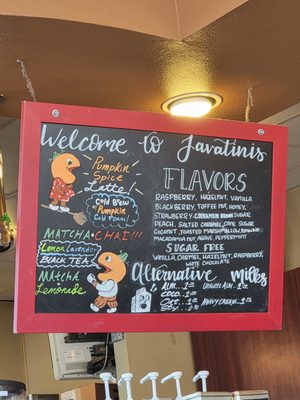 Welcome to Javatinis
Pumpkin
Spice
Latte
Cold Brew
Pumpkin
Cold Foam!
MATCHA
CHAI!!!
Lemon Lavender
BLACK TEA
MATCHA
Lemonade
FLAVORS
RASPBERRY, HAZELNUT, VANILLA
BLACKBERRY, TOFFEE NUT, HONEY,
STRAWBERRY, CINNAMON BROWN SUGAR,
PEACH, SALTED CARAMEL, CANE SUGAR
COCONUT, TOASTED MARSHMALLOW,
MACADAMIA NUT, AGAVE, PEPPERMINT
SUGAR FREE
VANILLA, CARAMEL, HAZELNUT, RASPBERRY,
WHITE CHOCOLATE
Alternative Milks
ALM...
COCO...
OAT...
SOY...
HEAVY CREAM